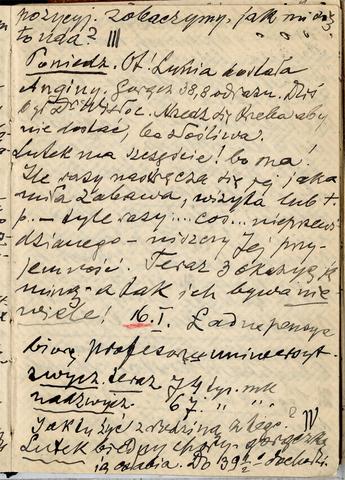 pozycyj. Zobaczymy, jak
to uda? III
Poniedz. Ot! Lusia dostała
Anginy. Gorącz 38,8 od razu. Dziś
był Dr Wisłoc. trzeba aby
nie dostać, bo złośliwa.
Lutek ma szczęście! bo ma!
Ile razy nastręcza się jej jaka
miła zabawa, wizyta lub t.
p. – tyle razy... coś... nieprzewi
dzianego – niszczy Jej przy-
jemność. Teraz 3 okazye ją
miną – a tak ich bywa nie-
wiele! 16.I. Ładne pensye
biorą profesorzy uniwersyt.
zwycz. teraz 74 tys. mk
nadzwycz. 67 " " "
Jak tu żyć z rodziną z tego? IV
Lutek biedny chory, gorączka
ją osłabia. Do 39 dochodzi.